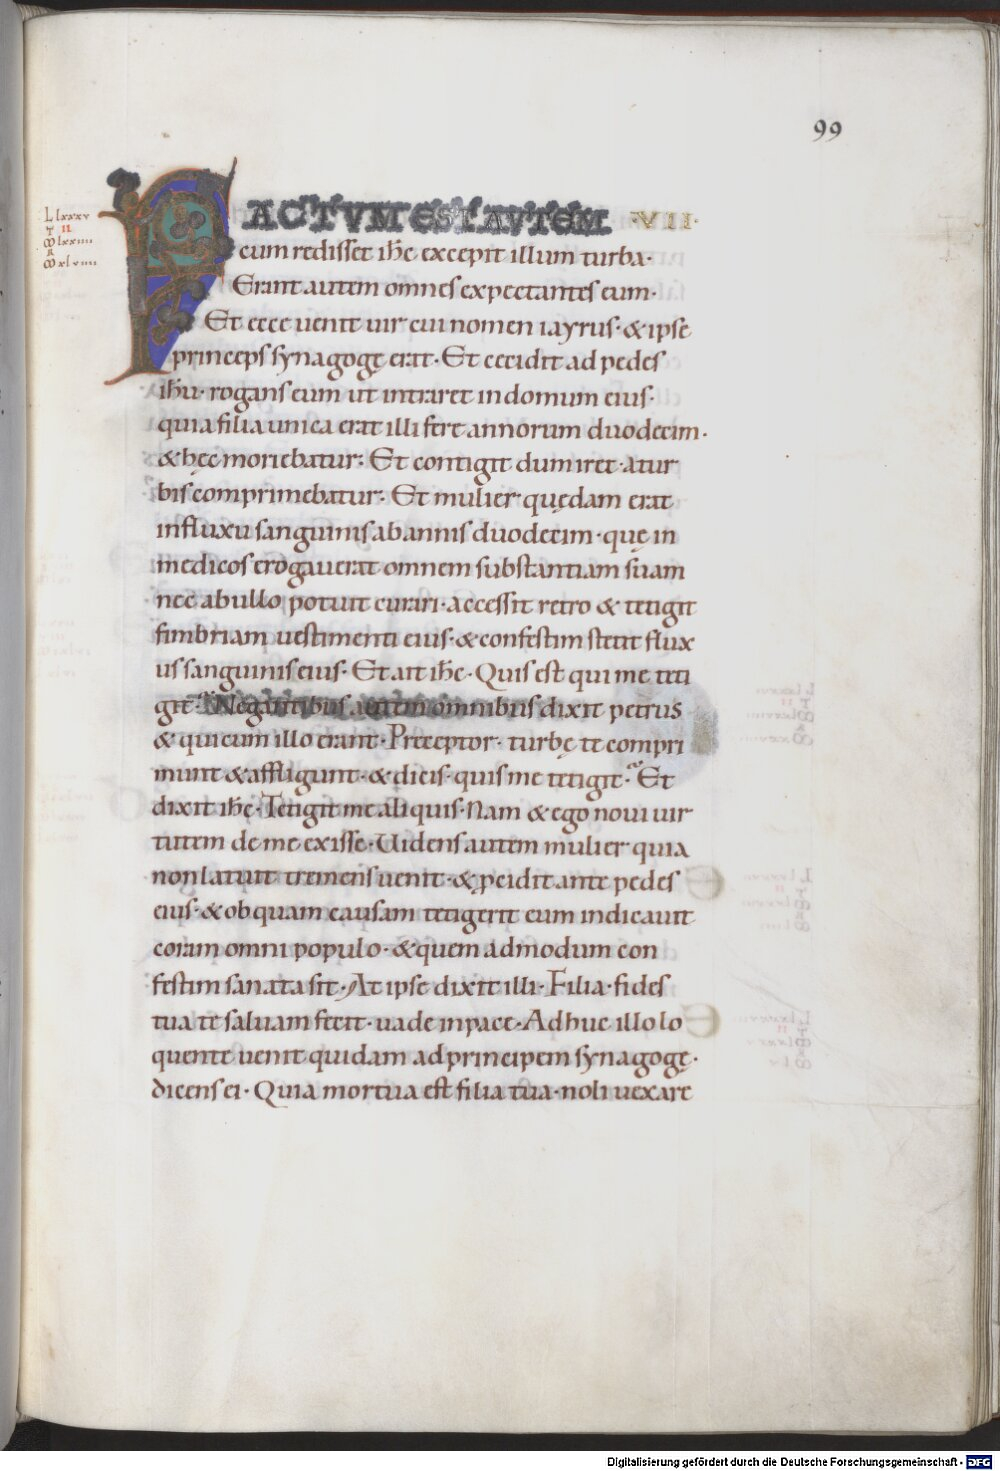 99
L lxxxv
II
M lxxiiii
R
M xlviiii
FACTVM EST AVTEM ·VII·
cum redisset ihc̄ excepit illum turba·
Erant autem omnes expectantes eum·
Et ecce uenit uir cui nomen iayrus· & ipse
princeps synagogę erat· Et cecidit ad pedes
ihū· rogans eum ut intraret in domum eius·
quia filia unica erat illi fere annorum duodecim·
& hęc moriebatur· Et contigit dum iret· a tur
bis comprimebatur· Et mulier quędam erat
in fluxu sanguinis ab annis duodecim· quę in
medicos erogauerat omnem substantiam suam
nec ab ullo potuit curari· accessit retro & tetigit
fimbriam uestimenti eius· & confestim stetit flux
us sanguinis eius· Et ait ihc̄· Quis est qui me teti
git· Negantibus autem omnibus dixit petrus
& qui cum illo erant· Preceptor· turbę te compri
munt & affligunt· & dicis· quis me tetigit· Et
dixit ihc̄· Tetigit me aliquis· Nam & ego noui uir
tutem de me exisse· Uidens autem mulier quia
non latuit tremens uenit· & p̨cidit ante pedes
eius· & ob quam causam tetigerit eum indicauit
coram omni populo· & quem admodum con
festim sanata sit· At ipse dixit illi· Filia· fides
tua te saluam fecit· uade in pace· Adhuc illo lo
quente uenit quidam ad principem synagogę·
dicens ei· Quia mortua est filia tua· noli uexare
Digitalisierung gefördert durch die Deutsche Forschungsgemeinschaft - DFG